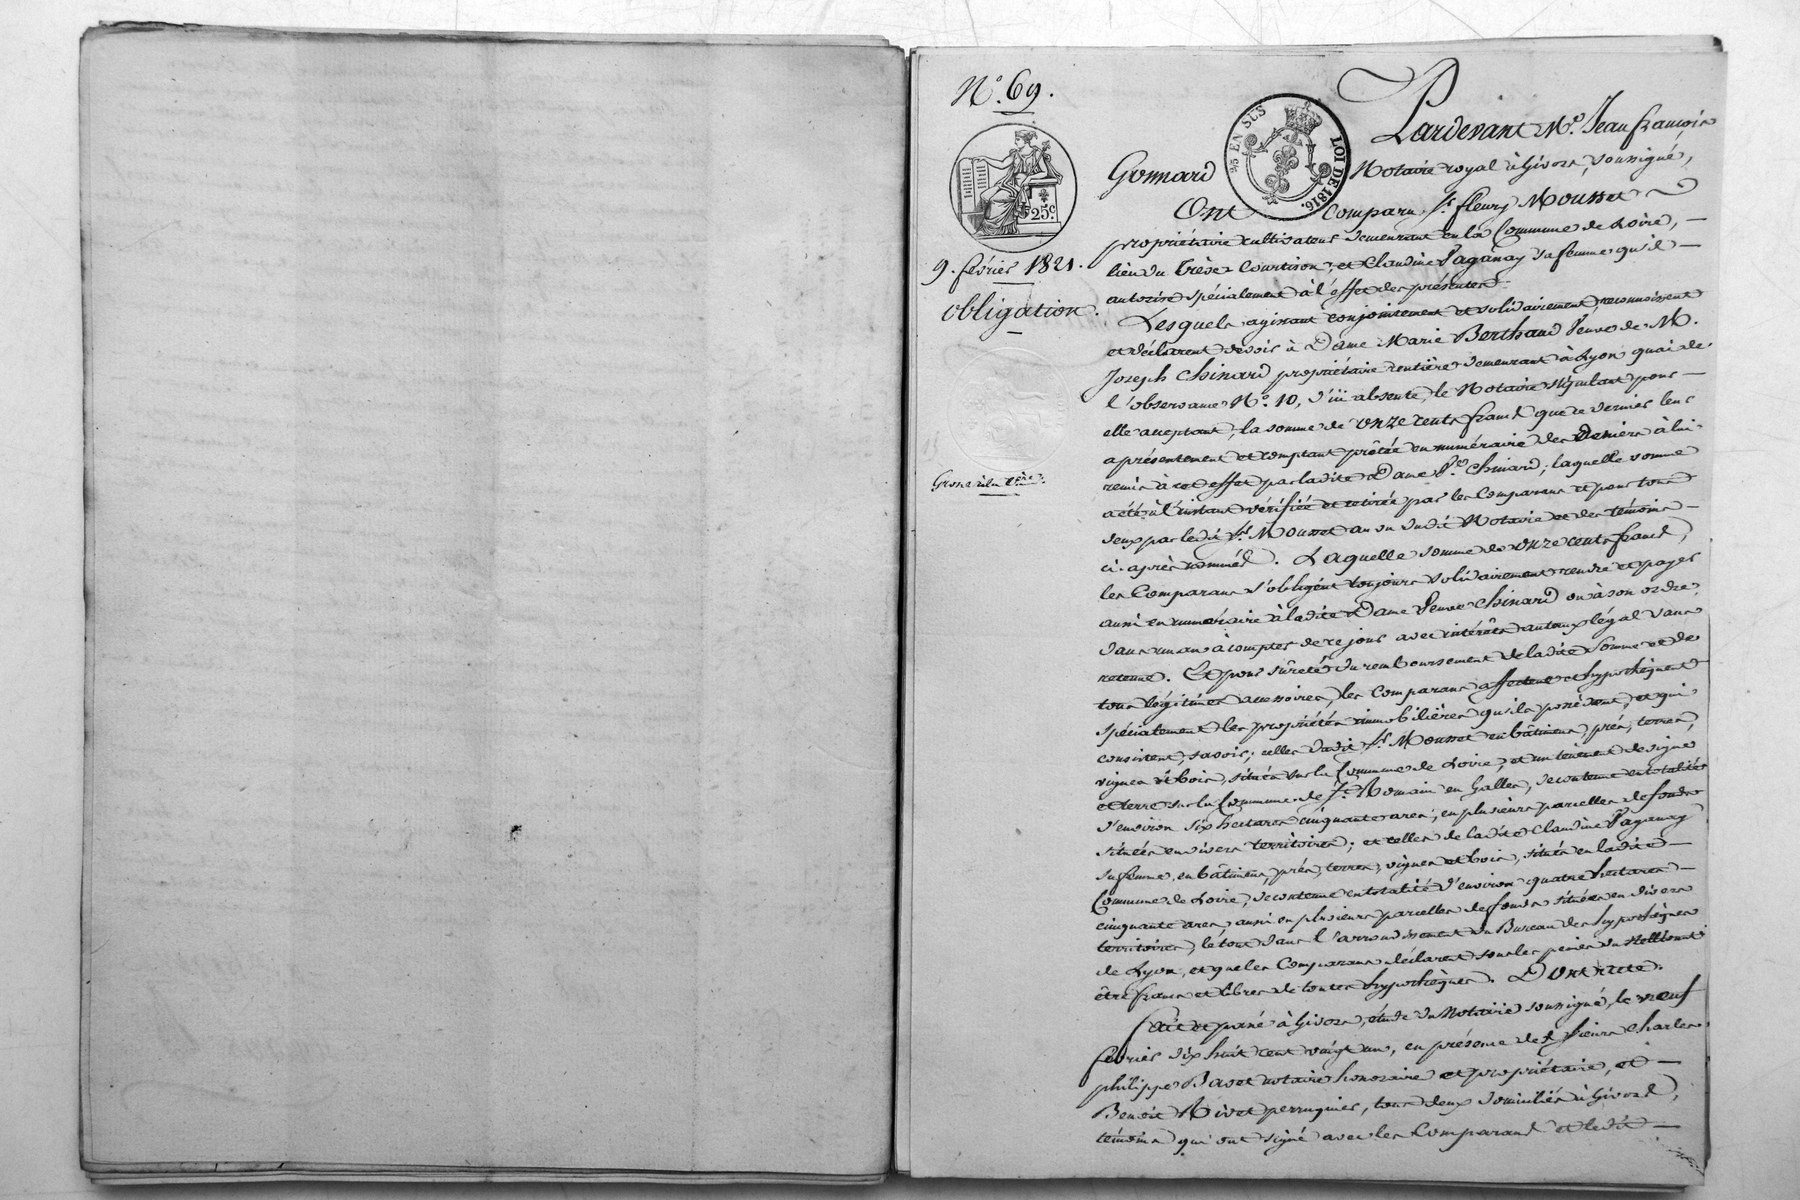 N.º 69.
25 EN SUS
LOI DE 1816.
25.c
9. février 1821.
obligation.
Grosse à la c.ère
Pardevant M.e Jean françois
Gonnard Notaire royal à Givors, soussigné,
Ont comparu S.r fleury Mousset
propriétaire cultivateur demeurant en la Commune de Loire,
lieu du Courtison, et Claudine Paganay sa femme qu'il
autorise spécialement à l'effet des présentes.
Lesquels agissant conjointement et solidairement, reconnoissent
et déclarent devoir à Dame Marie Berthaud Veuve de M.
Joseph Chinard propriétaire rentière demeurant à Lyon quai de
l'observance N.º 10, d'ici absente, le Notaire stipulant pour
elle acceptant, la somme de onze cents francs que ce dernier leur
a présentement et comptant prêtée en numéraire des Deniers à lui
remis à cet effet par ladite Dame V.e Chinard; laquelle somme
a été à l'instant vérifiée et retirée par les Comparans et pour tous
deux par ledit S.r Mousset au vu dudit Notaire et des témoins
ci-après nommés. Laquelle somme de onze cents francs,
les Comparans s'obligent toujours solidairement rendre et payer
aussi en numéraire à ladite Dame Veuve Chinard ou à son ordre,
dans un an à compter de ce jour avec intérêts au taux légal sans
retenue. Et pour sûreté du remboursement de ladite Somme et de
tous légitimes accessoires, les Comparans affectent et hypothèquent
spécialement les propriétés immobilières qu'ils possèdent, et qui
consistent, savoir; celles dudit S.r Mousset en bâtimens, prés, terres,
vignes et bois, situés sur la Commune de Loire, et un tènement de vigne
et terre sur la Commune de S.t Romain en Galles, de contenue en totalité
d'environ six hectares cinquante ares, en plusieurs parcelles de fonds
situées en divers territoires; et celles de ladite Claudine Paganay
sa femme, en bâtimens, prés, terres, vignes et bois, situés en ladite
Commune de Loire, de contenue en totalité d'environ quatre hectares
cinquante ares aussi en plusieurs parcelles de fonds situées en divers
territoires, le tout dans l'arrondissement du Bureau des hypothèques
de Lyon, et que les Comparans déclarent sous les peines du stellionat
être francs et libres de toutes hypothèques. Dont acte.
fait et passé à Givors, étude du Notaire soussigné, le neuf
février dix huit cent vingt un, en présence des Sieurs Charles
philippe Basset notaire honoraire et propriétaire, et
Benoît Rivet perruquier, tous deux domiciliés à Givors,
témoins qui ont signé avec les Comparans et ledit